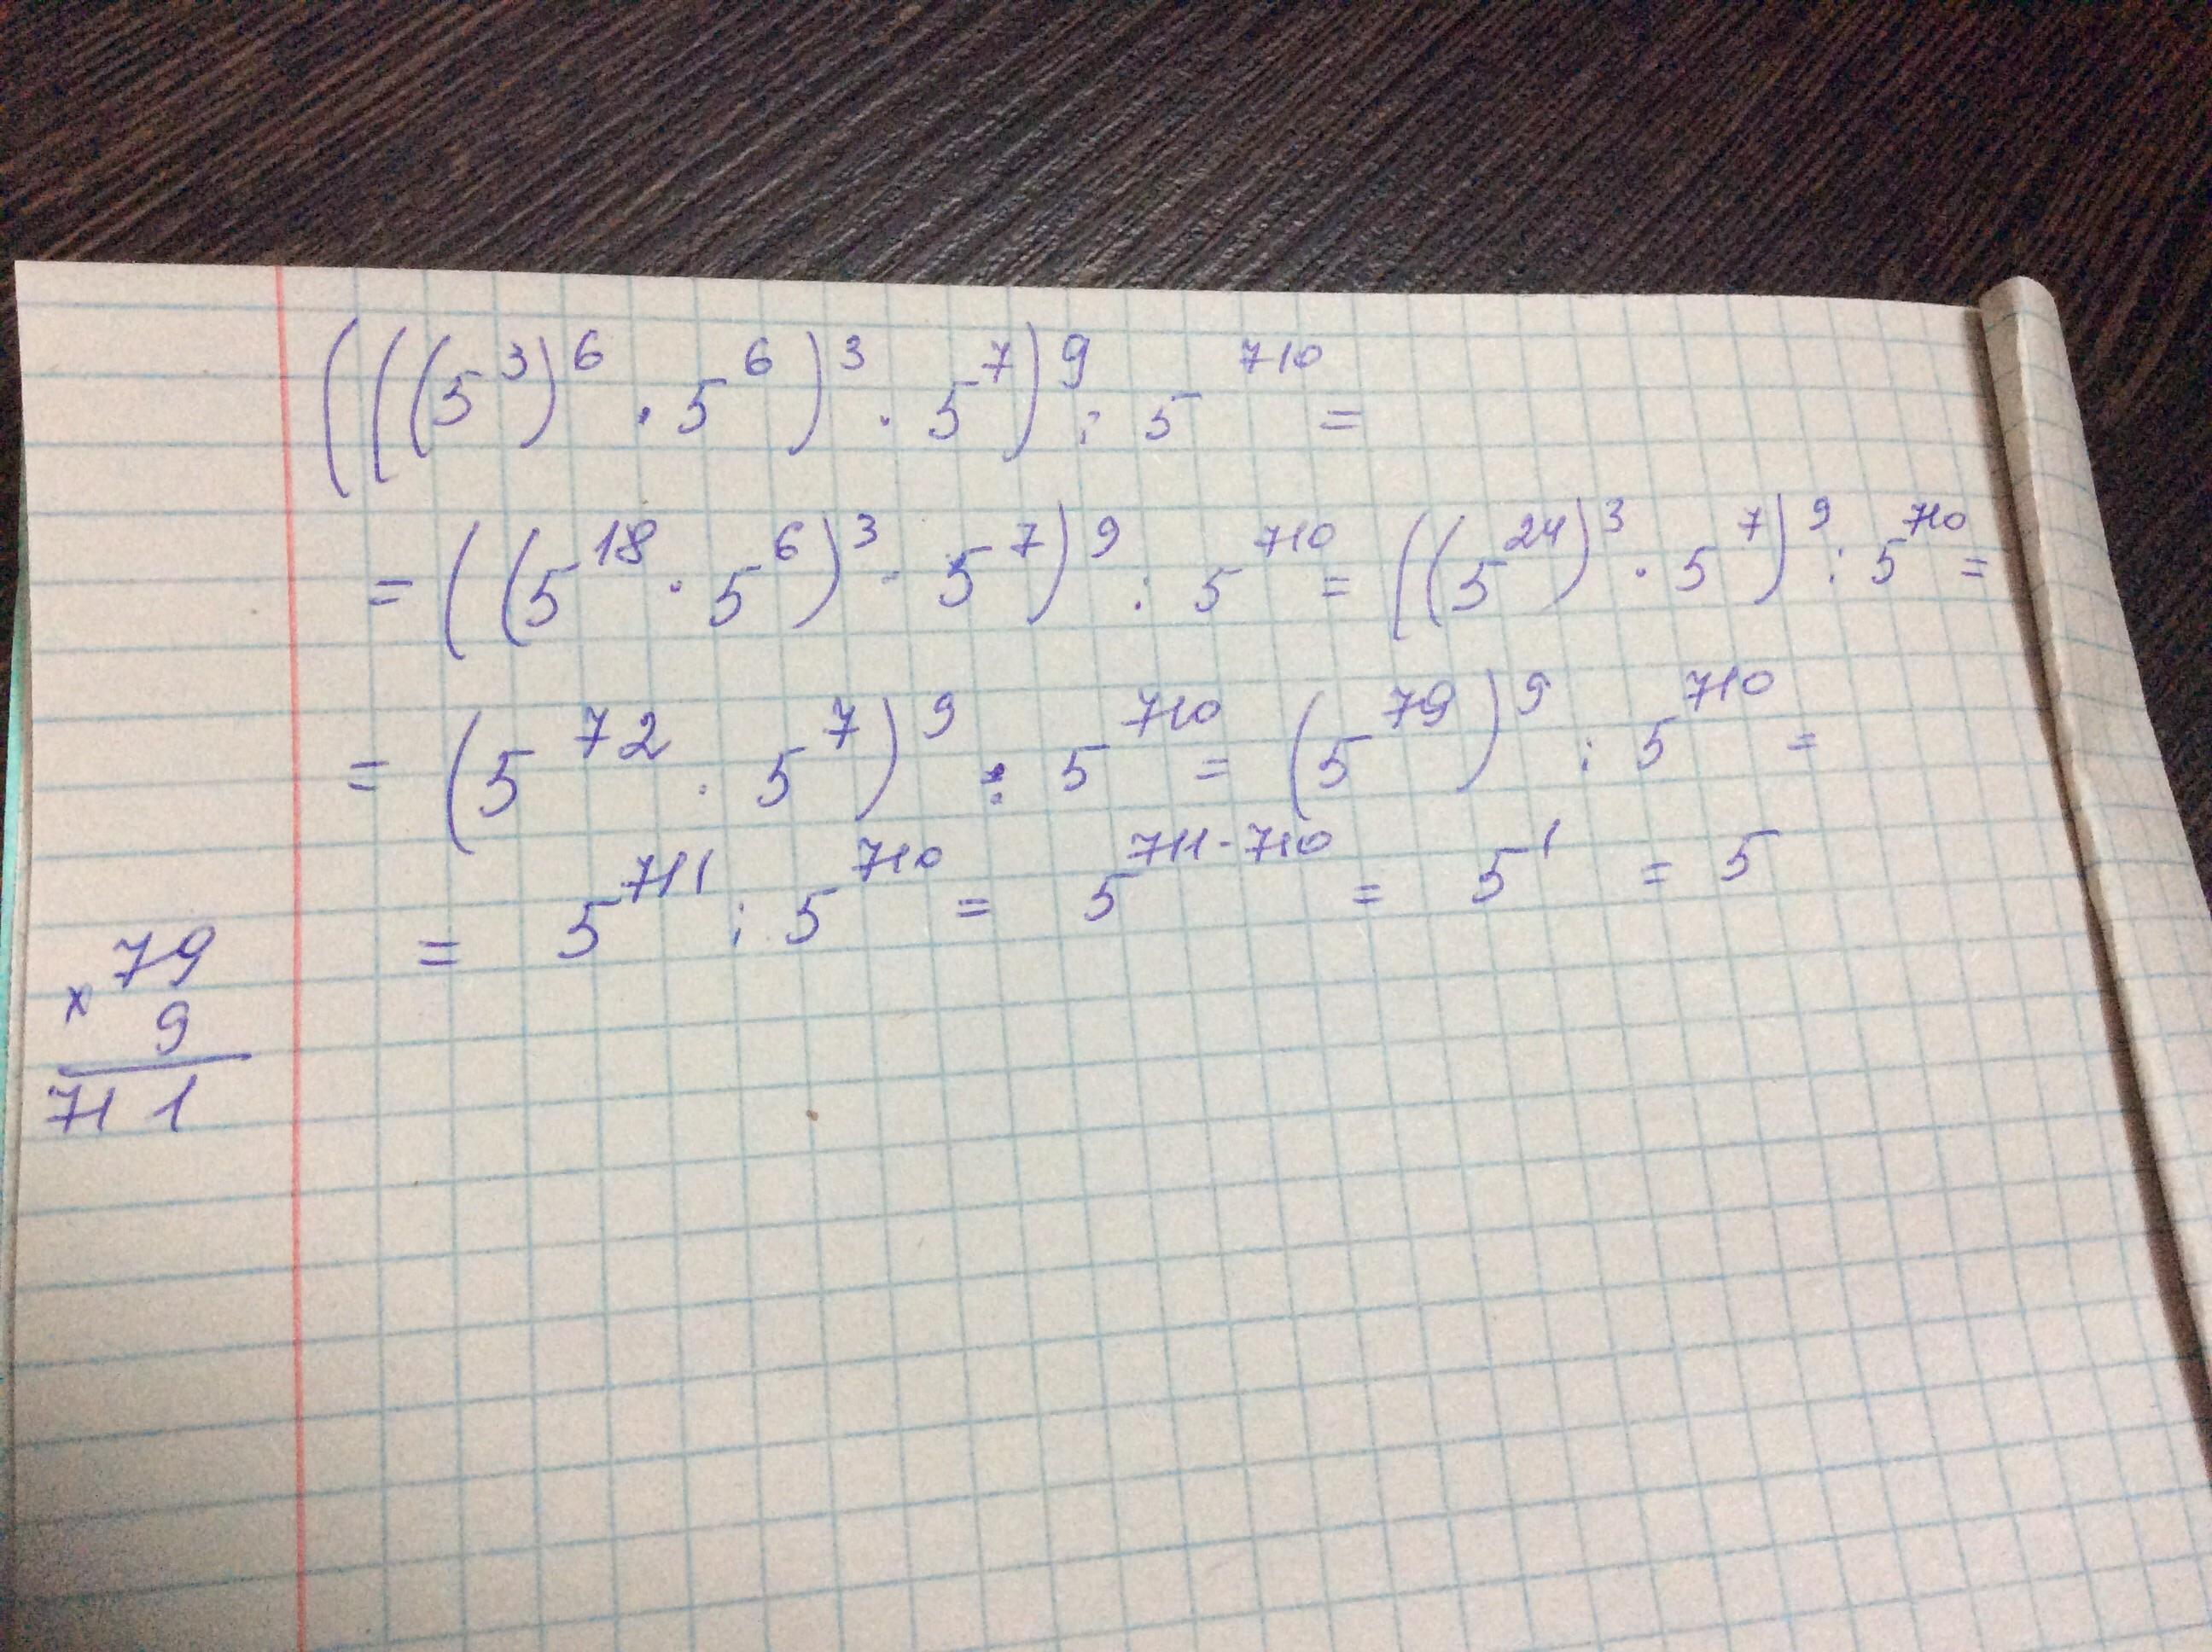 (((5³)⁶ · 5⁶)³ · 5⁷)⁹ : 5⁷¹⁰ =
= ((5¹⁸ · 5⁶)³ · 5⁷)⁹ : 5⁷¹⁰ = ((5²⁴)³ · 5⁷)⁹ : 5⁷¹⁰ =
= (5⁷² · 5⁷)⁹ : 5⁷¹⁰ = (5⁷⁹)⁹ : 5⁷¹⁰ =
= 5⁷¹¹ : 5⁷¹⁰ = 5⁷¹¹⁻⁷¹⁰ = 5¹ = 5
79
x 9
711